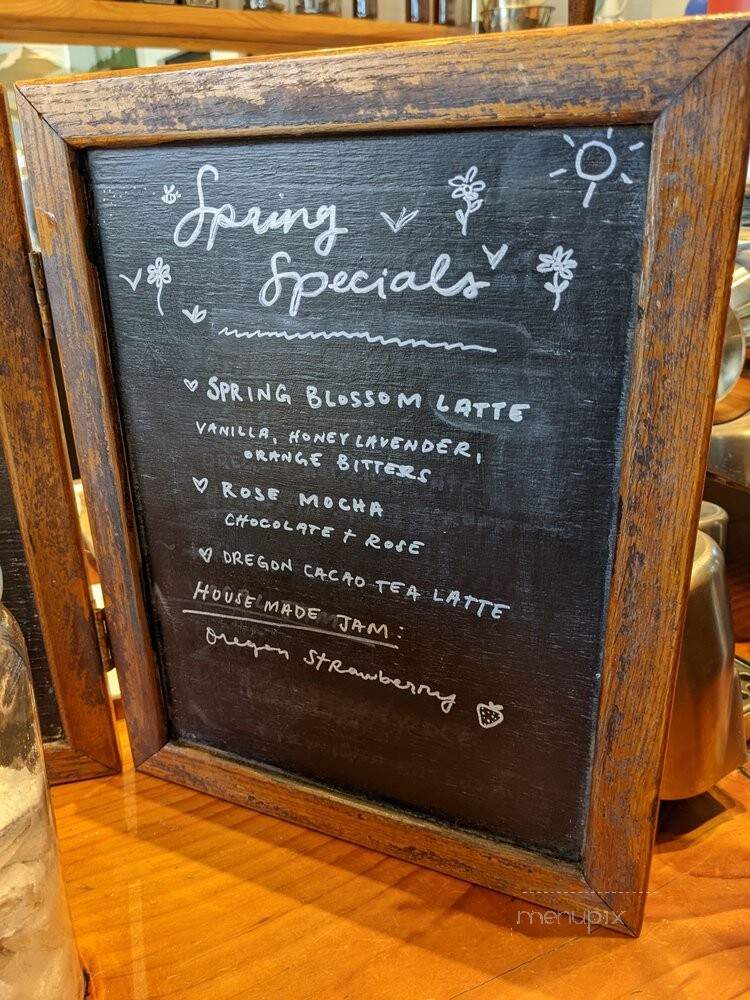 Spring
Specials
SPRING BLOSSOM LATTE
VANILLA, HONEY LAVENDER,
ORANGE BITTERS
ROSE MOCHA
CHOCOLATE + ROSE
OREGON CACAO TEA LATTE
HOUSEMADE JAM:
Oregon Strawberry
menupix